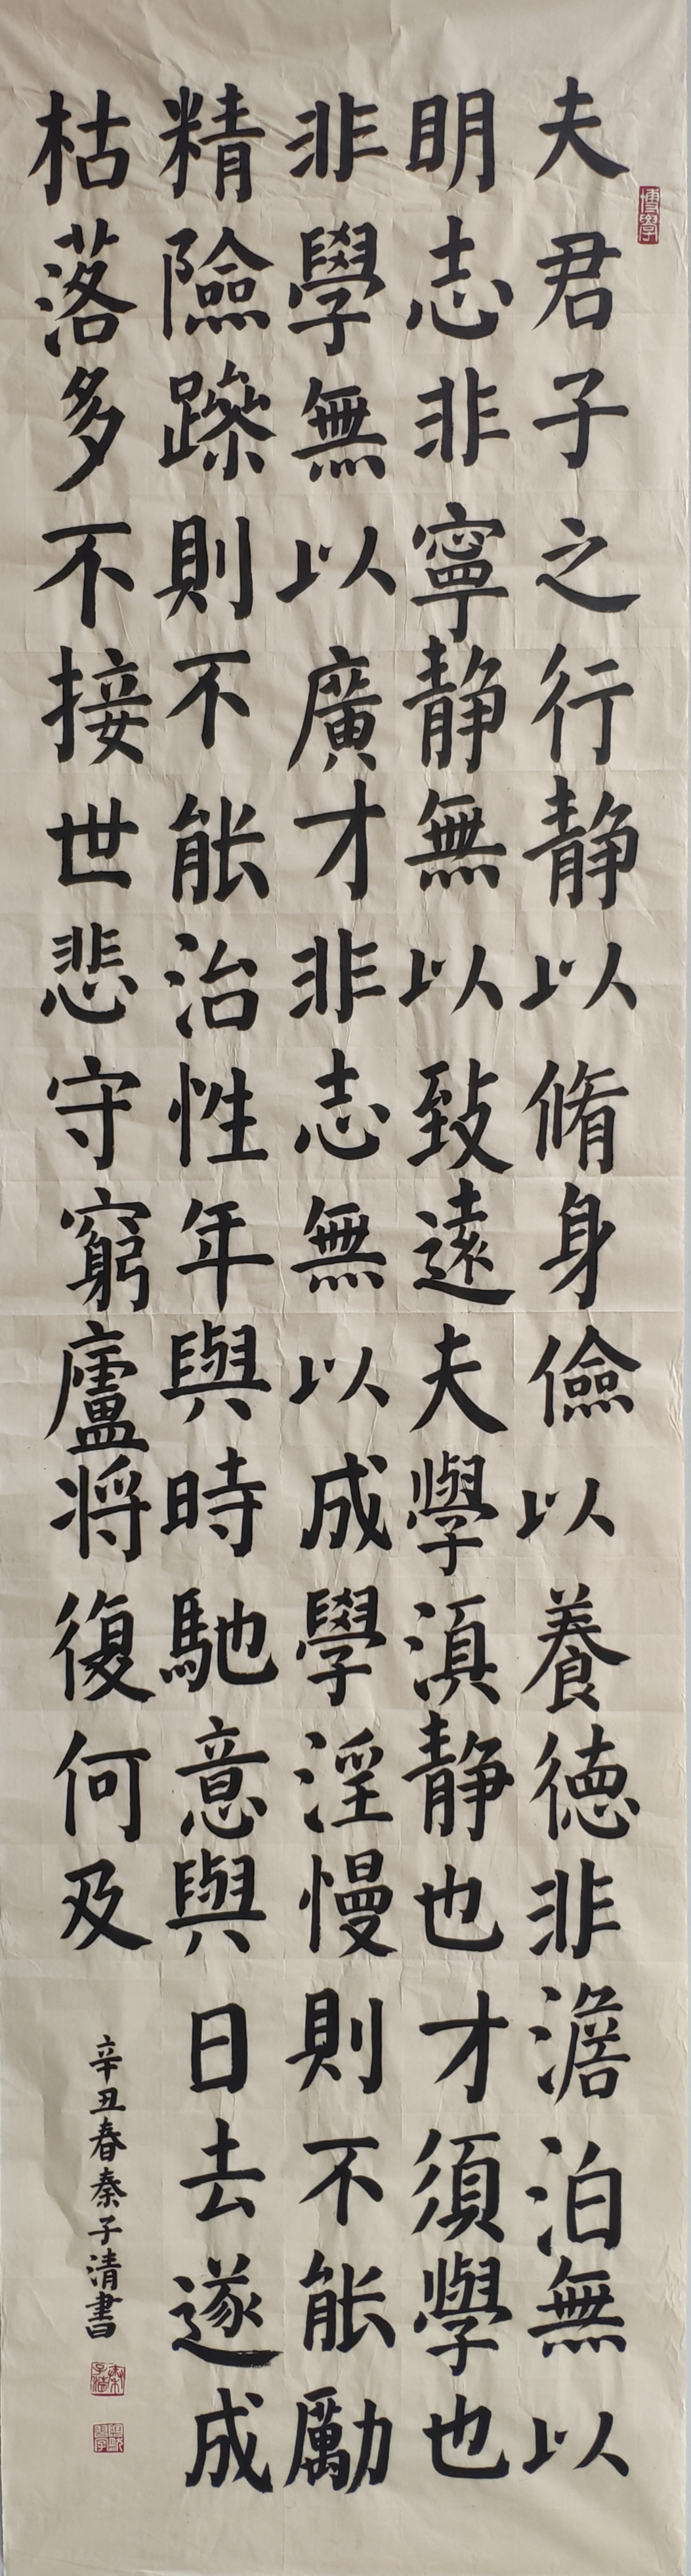 博學
夫君子之行静以脩身儉以養徳非澹泊無以
明志非寧静無以致遠夫學湏静也才須學也
非學無以廣才非志無以成學淫慢則不能勵
精險躁則不能治性年與時馳意與日去遂成
枯落多不接世悲守窮廬将復何及
辛丑春秦子清書